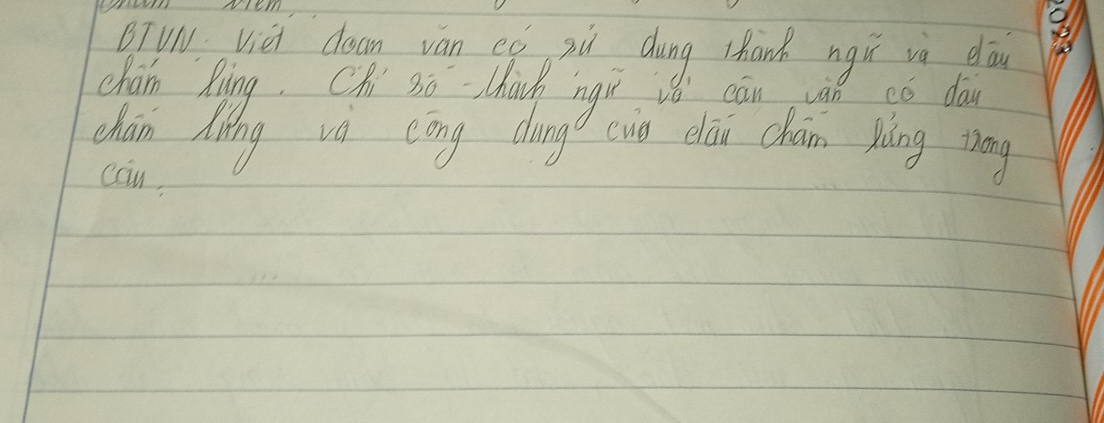 BTVN: Viết đoạn văn có sử dụng thành ngữ và dấu
chấm lửng. Chỉ rõ thành ngữ và câu văn có dấu
chấm lửng và công dụng của dấu chấm lửng trong
câu.
2023